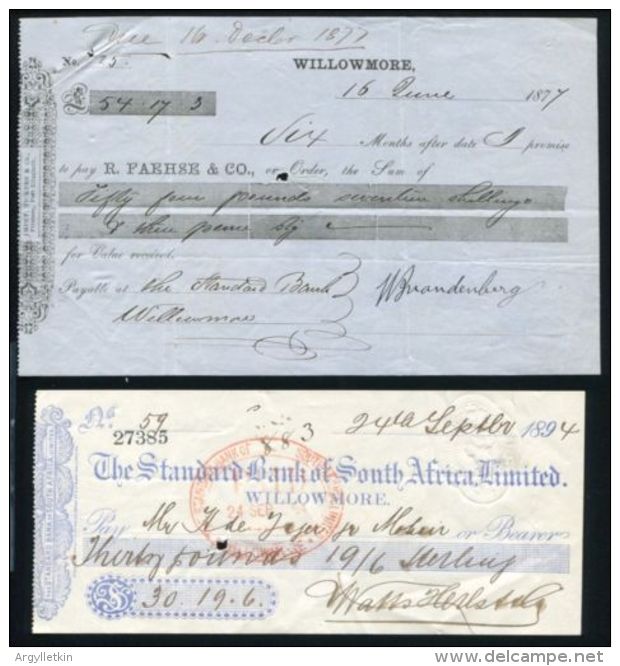 Due 16 Decbr 1877
No. 75
WILLOWMORE,
£ 54 - 17 - 3
16 June 1877
Six Months after date I promise
to pay R. FAEHSE & CO., or Order, the Sum of
Fifty four pounds seventeen shillings
& three pence stg
for Value received.
Payable at the Standard Bank
Willowmore
WBrandenberg
No 59
27385
883
24th Septbr 1894
The Standard Bank of South Africa, Limited.
WILLOWMORE.
24 SEP
Pay Mr de Jager or Bearer
Thirty pounds 19/6 Sterling
£ 30.19.6.
© Argylletkin
delcampe.net